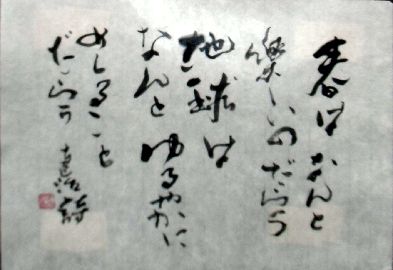 春はなんと
楽しいのだらう
地球は
なんとゆるやかに
めぐること
だらう 詩